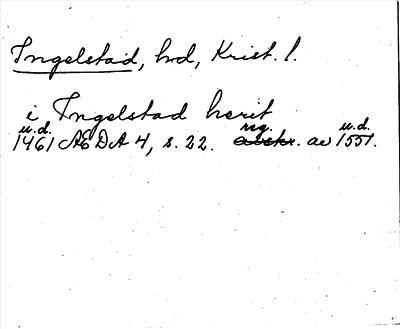 Ingelstad, hd, Krist. l.
i Ingelstad herit
u.d. reg. u.d.
1461 AEDA 4, s. 22. avskr. av 1551.